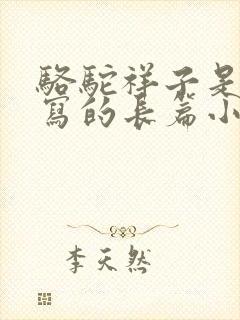 駱駝祥子是
寫的長篇小
李天然